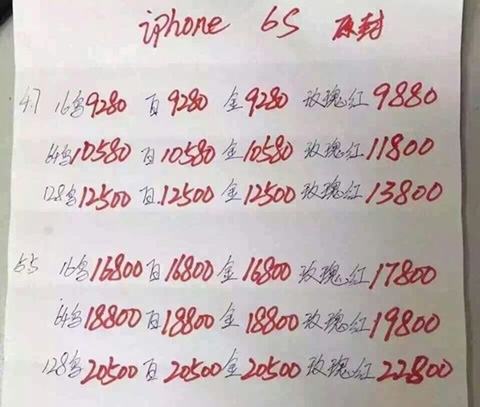 iphone 6S 原封
4.7 16离9280 白9280 金9280 玫瑰红9880
64离10580 白10580 金10580 玫瑰红11800
128离12500 白12500 金12500 玫瑰红13800
5.5 16离16800 白16800 金16800 玫瑰红17800
64离18800 白18800 金18800 玫瑰红19800
128离20500 白20500 金20500 玫瑰红22800